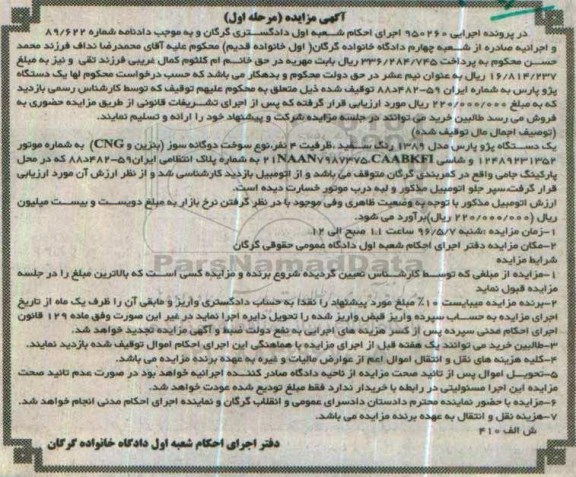 آگهی مزایده (مرحله اول)
در پرونده اجرایی ۹۵۰۲۶۰ اجرای احکام شعبه اول دادگستری گرگان و به موجب دادنامه شماره ۸۹/۶۲۲
و اجرائیه صادره از شعبه چهارم دادگاه خانواده گرگان( اول خانواده قدیم) محکوم علیه آقای محمدرضا نداف فرزند محمد
حسن محکوم به پرداخت ۳۳۶/۲۸۴/۷۴۵ ریال بابت مهریه در حق خانم ام کلثوم کمال غریبی فرزند تقی و نیز به مبلغ
۱۶/۸۱۴/۲۳۷ ریال به عنوان نیم عشر در حق دولت محکوم و بدهکار می باشد که حسب درخواست محکوم لها یک دستگاه
پژو پارس به شماره ایران ۵۹-۸۸د۴۸۲ توقیف شده ذیل متعلق به محکوم علیهم توقیف که توسط کارشناس رسمی بازدید
که به مبلغ ۲۲۰/۰۰۰/۰۰۰ ریال مورد ارزیابی قرار گرفته که پس از اجرای تشریفات قانونی از طریق مزایده حضوری به
فروش می رسد طالبین خرید می توانند در جلسه مزایده شرکت و پیشنهاد خود را ارائه و تسلیم نمایند.
(توصیف اجمال مال توقیف شده)
یک دستگاه پژو پارس مدل ۱۳۸۹ رنگ سفید ،ظرفیت ۴ نفر،نوع سوخت دوگانه سوز (بنزین و CNG) به شماره موتور
۱۲۴۸۹۲۳۱۳۵۲ و شاسی NAAN۷۹۸۷۴۷۵،CAABKFI۲۱ به شماره پلاک انتظامی ایران۵۹-۸۸د۴۸۲ که در محل
پارکینگ جامی واقع در کمربندی گرگان متوقف می باشد و از اتومبیل بازدید کارشناسی شد و از نظر ارزش آن مورد ارزیابی
قرار گرفت.سپر جلو اتومبیل مذکور و لبه درب موتور خسارت دیده است.
ارزش اتومبیل مذکور با توجه به وضعیت ظاهری وفی موجود با در نظر گرفتن نرخ بازار به مبلغ دویست و بیست میلیون
ریال (۲۲۰/۰۰۰/۰۰۰ ریال)برآورد می شود.
۱-زمان مزایده :شنبه ۹۶/۵/۷ ساعت ۱۱ صبح الی ۱۲
۲-مکان مزایده دفتر اجرای احکام شعبه اول دادگاه عمومی حقوقی گرگان
شرایط مزایده
۱-مزایده از مبلغی که توسط کارشناس تعیین گردیده شروع برنده و مزایده کسی است که بالاترین مبلغ را در جلسه
مزایده قبول نماید
۲-برنده مزایده میبایست ۱۰٪ مبلغ مورد پیشنهاد را نقدا به حساب دادگستری واریز و مابقی آن را ظرف یک ماه از تاریخ
اجرای مزایده به حساب سپرده واریز قبض واریز شده را تحویل دایره اجرا نماید در غیر این صورت وفق ماده ۱۲۹ قانون
اجرای احکام مدنی سپرده پس از کسر هزینه های اجرایی به نفع دولت ضبط و آگهی مزایده تجدید خواهد شد.
۳-طالبین خرید می توانند یک هفته قبل از اجرای مزایده با هماهنگی این اجرای احکام اموال توقیف شده بازدید نمایند.
۴-کلیه هزینه های نقل و انتقال اموال اعم از عوارض مالیات و غیره به عهده برنده مزایده می باشد.
۵-تحویل اموال پس از تائید صحت مزایده از ناحیه دادگاه صادر کننده اجرائیه خواهد بود در صورت عدم تائید صحت
مزایده این اجرا مسئولیتی در رابطه با خریدار ندارد فقط مبلغ تودیع شده عودت خواهد شد.
۶-مزایده با حضور نماینده محترم دادستان دادسرای عمومی و انقلاب گرگان و نماینده اجرای احکام مدنی انجام خواهد شد.
۷-هزینه نقل و انتقال به عهده برنده مزایده می باشد.
ش الف ۴۱۰
دفتر اجرای احکام شعبه اول دادگاه خانواده گرگان
ParsNamadData